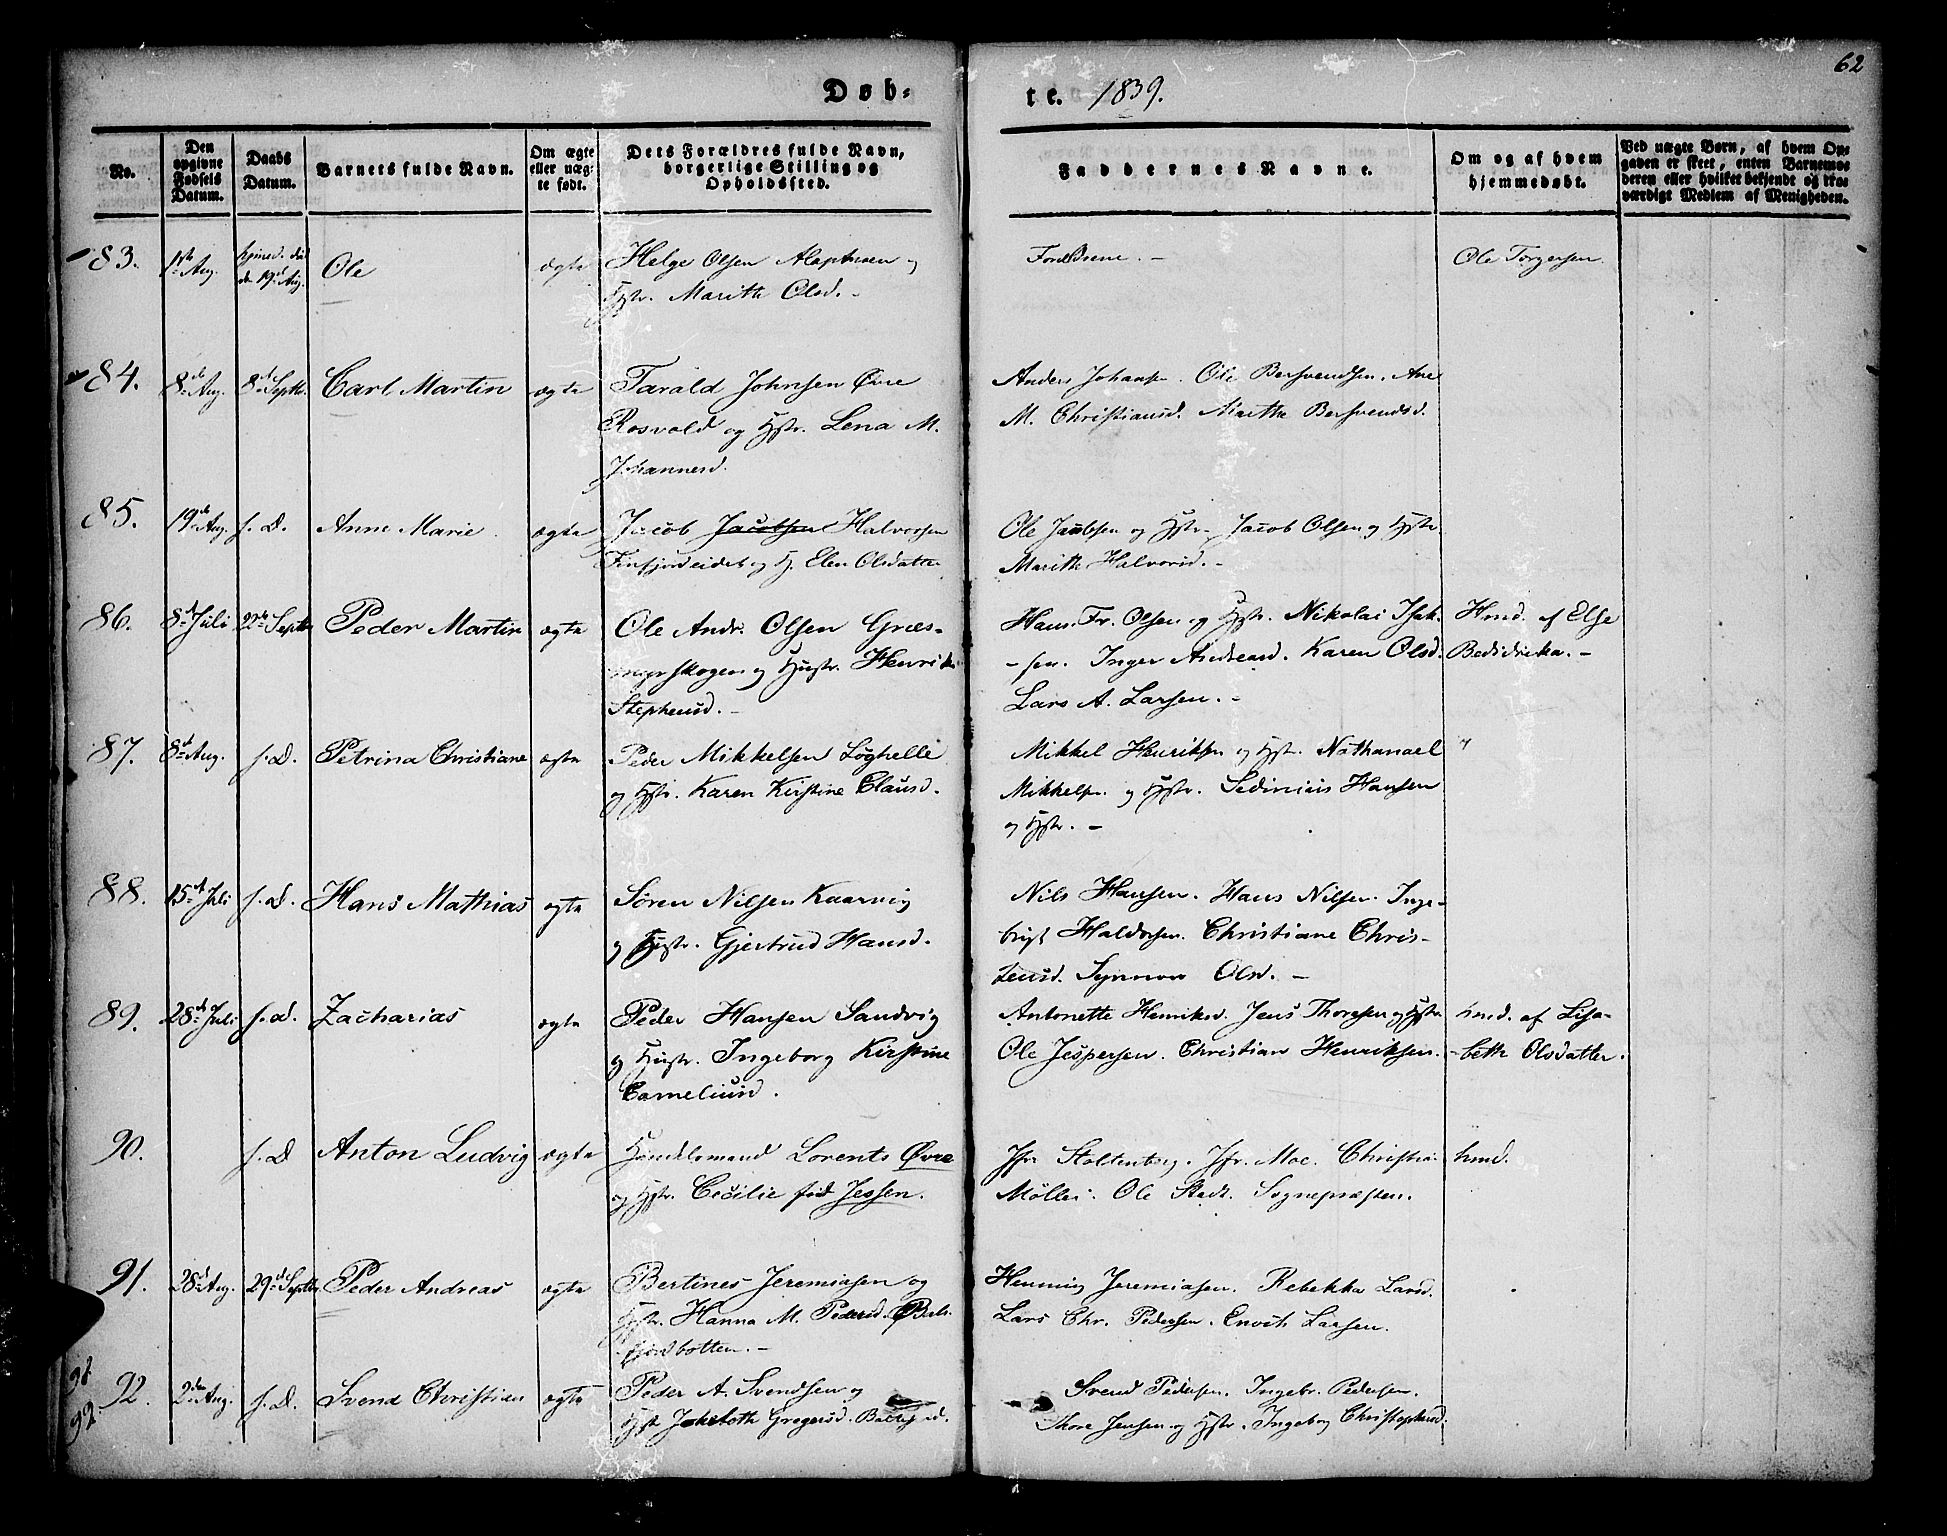 62
Døb-
te. 1839.
No.
Den opgivne Fødsels Datum.
Daabs Datum.
Barnets fulde Navn.
Om ægte eller uægte født.
Dets Forældres fulde Navn, borgerlige Stilling og Opholdssted.
Faddernes Navne.
Om og af hvem hjemmedøbt.
Ved uægte Børn, af hvem Opgaven er skeet, enten Barnemoderen eller hvilket bekjendt og troværdigt Medlem af Menigheden.
83. 1ste Aug. den 19d Aug. Ole ægte Helge Olsen og
Hstr. Marith Olsd. -
Forældrene. -
Ole Torgersen
84. 8de Aug. 8d Septbr. Carl Martin ægte Tarald Johnsen Øvre
Rosvold og Hstr. Lena M.
Johannesd.
Anders Johansen. Ole Bersvendsen. Ane
M. Christiansd. Marthe Bersvendsd.
85. 19de Aug. s. D. Anne Marie ægte Jacob Jacobsen Halvorsen
Finfjordeidet og H. Elen Olsdatter
Ole Jacobsen og Hstr. Jacob Olsen og Hstr
Marith Halvorsd. -
86. 8d Juli 22de Septbr Peder Martin ægte Ole Andr. Olsen Græs-
myrskogen og Hustr. Henrik
Stephensd. -
Hans Fr. Olsen og Hstr. Nikolai Isak-
-sen. Inger Andreasd. Karen Olsd.
Lars A. Larsen. -
Hmd. af Else
Bedidrika. -
87. 8d Aug. s. D. Petrina Christiane ægte Peder Mikkelsen Løghelle
og Hstr. Karen Kirstine Clausd.
Mikkel Henriksen og Hstr. Nathanael
Mikkelsen og Hstr. Sedinius Hansen
og Hstr. -
88. 15de Juli s. d. Hans Mathias ægte Søren Nilsen Kaarvig
og Hustr. Gjertrud Hansd.
Nils Hansen. Hans Nilsen. Inge-
brigt Haldorsen. Christiane Chris-
tensd. Synnow Olsd. -
89. 28de Juli s. d. Zacharias ægte Peder Hansen Sandvig
og Hustr. Ingeborg Kirstine
Corneliusd.
Antonette Henriksd. Jens Thoresen og Hstr
Ole Jespersen. Christian Henriksen.
hmd. af Lisa-
-beth Olsdatter.
90. s. D Anton Ludvig ægte Handelsmand Lorents Øvre
og Hstr. Cecilie fød Jessen.
Jfr. Stoltenberg. Jfr. Moe. Christia-
Möller. Ole Stadt. Sognepræsten.
hmd.
91. 28d Aug. 29d Septbr. Peder Andreas ægte Bertines Jeremiasen og
Hstr. Hanna M. Pedersd. Bals-
fjordbotten. -
Henning Jeremiasen. Rebekka Larsd.
Lars Chr. Pedersen. Enoch Larsen.
91
92
92. 2den Aug. s. D. Svend Christian ægte Peder A. Svendsen og
Hst. Gregersd.
Svend Pedersen. Ingebr. Pedersen.
Thore Jensen og Hstr. Ingebog Christophersd.